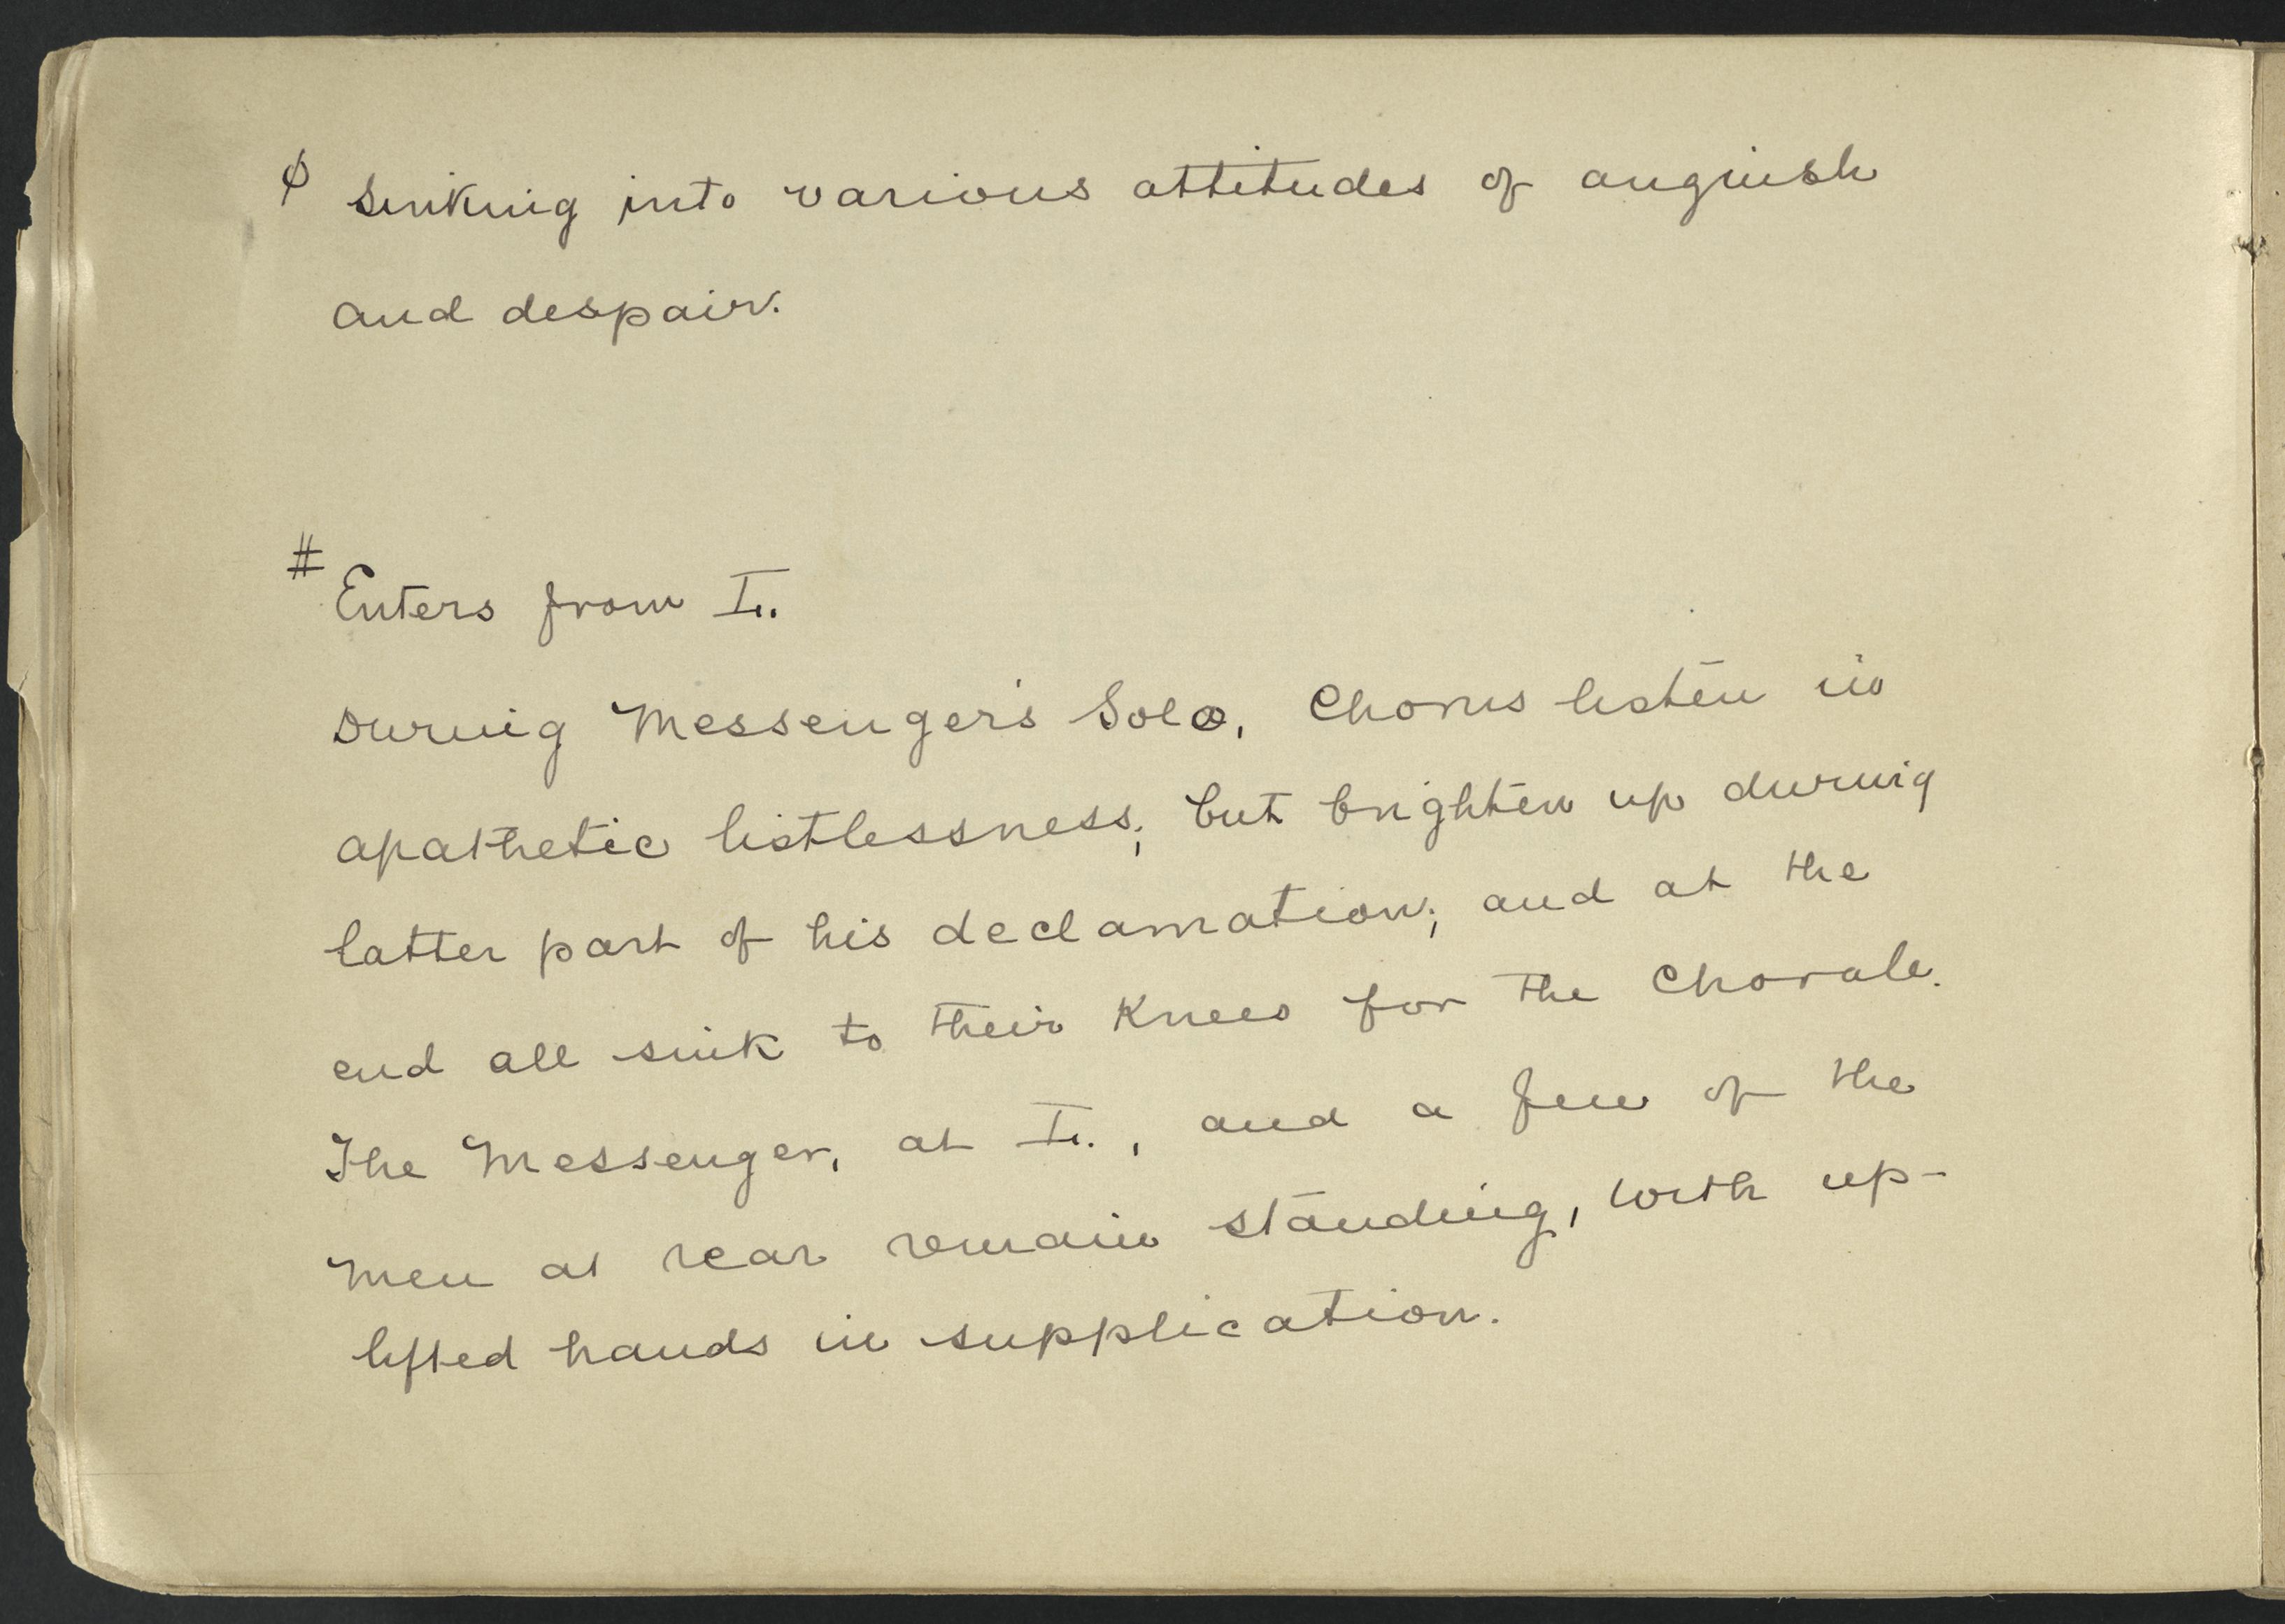 φ Sinking into various attitudes of anguish
and despair.
# Enters from I r.
During Messenger's Solo, Chorus listen in
apathetic listlessness; but brighten up during
latter part of his declamation; and at the
end all sink to their knees for the Chorale.
The Messenger, at I r., and a few of the
men at rear remain standing, with up-
lifted hands in supplication.